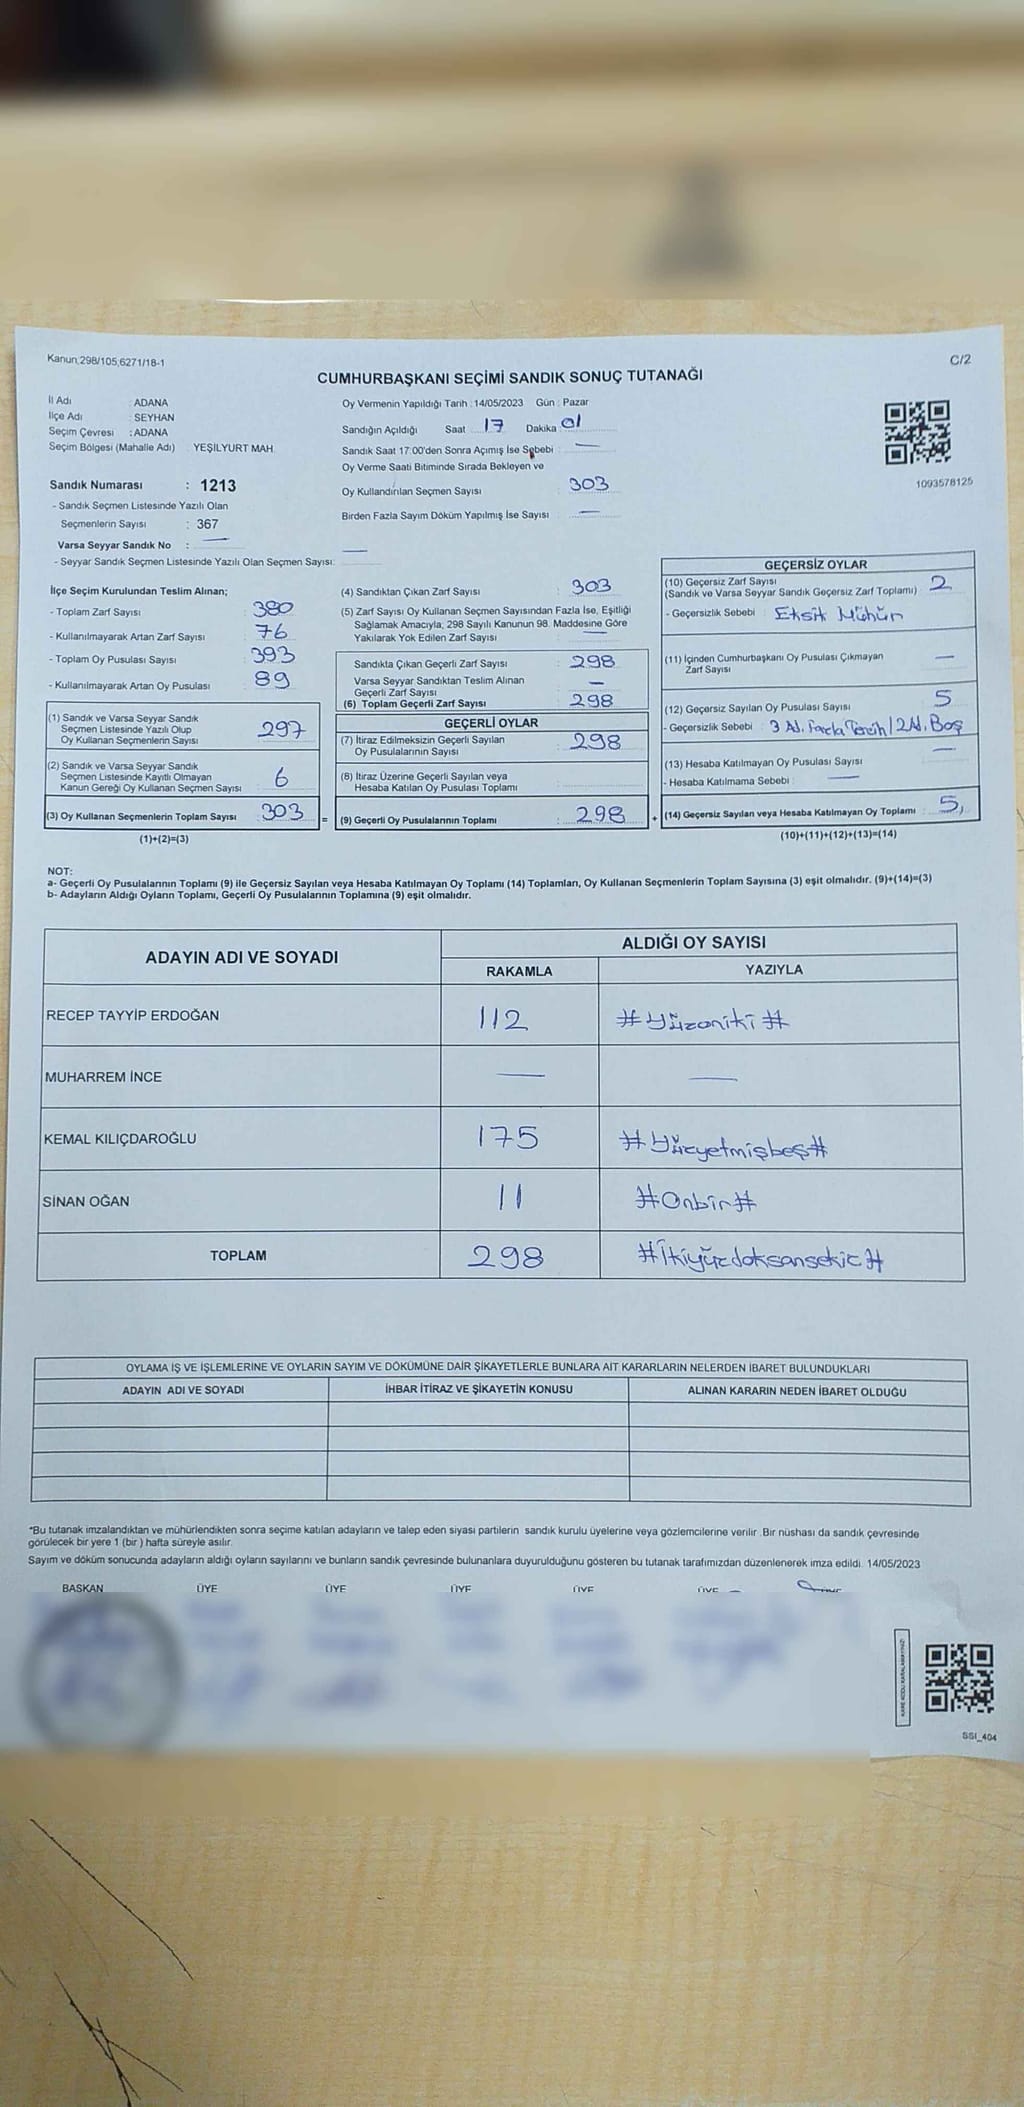 Kanun;298/105,6271/18-1
C/2
CUMHURBAŞKANI SEÇİMİ SANDIK SONUÇ TUTANAĞI
İl Adı : ADANA
İlçe Adı : SEYHAN
Seçim Çevresi : ADANA
Seçim Bölgesi (Mahalle Adı) YEŞİLYURT MAH.
Sandık Numarası : 1213
- Sandık Seçmen Listesinde Yazılı Olan
Seçmenlerin Sayısı : 367
Varsa Seyyar Sandık No : —
- Seyyar Sandık Seçmen Listesinde Yazılı Olan Seçmen Sayısı: —
Oy Vermenin Yapıldığı Tarih : 14/05/2023 Gün : Pazar
Sandığın Açıldığı Saat 17 Dakika 01
Sandık Saat 17:00'den Sonra Açımış İse Sebebi : —
Oy Verme Saati Bitiminde Sırada Bekleyen ve
Oy Kullandırılan Seçmen Sayısı 303
Birden Fazla Sayım Döküm Yapılmış İse Sayısı : —
1093578125
İlçe Seçim Kurulundan Teslim Alınan;
- Toplam Zarf Sayısı : 380
- Kullanılmayarak Artan Zarf Sayısı : 76
- Toplam Oy Pusulası Sayısı : 393
- Kullanılmayarak Artan Oy Pusulası : 89
(1) Sandık ve Varsa Seyyar Sandık
Seçmen Listesinde Yazılı Olup
Oy Kullanan Seçmenlerin Sayısı : 297
(2) Sandık ve Varsa Seyyar Sandık
Seçmen Listesinde Kayıtlı Olmayan
Kanun Gereği Oy Kullanan Seçmen Sayısı : 6
(3) Oy Kullanan Seçmenlerin Toplam Sayısı : 303 =
(1)+(2)=(3)
(4) Sandıktan Çıkan Zarf Sayısı : 303
(5) Zarf Sayısı Oy Kullanan Seçmen Sayısından Fazla İse, Eşitliği
Sağlamak Amacıyla; 298 Sayılı Kanunun 98. Maddesine Göre
Yakılarak Yok Edilen Zarf Sayısı —
Sandıkta Çıkan Geçerli Zarf Sayısı : 298
Varsa Seyyar Sandıktan Teslim Alınan
Geçerli Zarf Sayısı : —
(6) Toplam Geçerli Zarf Sayısı : 298
GEÇERLİ OYLAR
(7) İtiraz Edilmeksizin Geçerli Sayılan
Oy Pusulalarının Sayısı : 298
(8) İtiraz Üzerine Geçerli Sayılan veya
Hesaba Katılan Oy Pusulası Toplamı
(9) Geçerli Oy Pusulalarının Toplamı : 298 +
GEÇERSİZ OYLAR
(10) Geçersiz Zarf Sayısı
(Sandık ve Varsa Seyyar Sandık Geçersiz Zarf Toplamı) 2
- Geçersizlik Sebebi : Eksik Mühür
(11) İçinden Cumhurbaşkanı Oy Pusulası Çıkmayan
Zarf Sayısı —
(12) Geçersiz Sayılan Oy Pusulası Sayısı 5
- Geçersizlik Sebebi : 3 Ad. Fazla Tercih / 2 Ad. Boş
(13) Hesaba Katılmayan Oy Pusulası Sayısı —
- Hesaba Katılmama Sebebi : —
(14) Geçersiz Sayılan veya Hesaba Katılmayan Oy Toplamı : 5,
(10)+(11)+(12)+(13)=(14)
NOT:
a- Geçerli Oy Pusulalarının Toplamı (9) ile Geçersiz Sayılan veya Hesaba Katılmayan Oy Toplamı (14) Toplamları, Oy Kullanan Seçmenlerin Toplam Sayısına (3) eşit olmalıdır. (9)+(14)=(3)
b- Adayların Aldığı Oyların Toplamı, Geçerli Oy Pusulalarının Toplamına (9) eşit olmalıdır.
ADAYIN ADI VE SOYADI
ALDIĞI OY SAYISI
RAKAMLA YAZIYLA
RECEP TAYYİP ERDOĞAN 112 #Yüzoniki#
MUHARREM İNCE — —
KEMAL KILIÇDAROĞLU 175 #Yüzyetmişbeş#
SİNAN OĞAN 11 #Onbir#
TOPLAM 298 #İkiyüzdoksansekiz#
OYLAMA İŞ VE İŞLEMLERİNE VE OYLARIN SAYIM VE DÖKÜMÜNE DAİR ŞİKAYETLERLE BUNLARA AİT KARARLARIN NELERDEN İBARET BULUNDUKLARI
ADAYIN ADI VE SOYADI İHBAR İTİRAZ VE ŞİKAYETİN KONUSU ALINAN KARARIN NEDEN İBARET OLDUĞU
*Bu tutanak imzalandıktan ve mühürlendikten sonra seçime katılan adayların ve talep eden siyasi partilerin sandık kurulu üyelerine veya gözlemcilerine verilir .Bir nüshası da sandık çevresinde
görülecek bir yere 1 (bir ) hafta süreyle asılır.
Sayım ve döküm sonucunda adayların aldığı oyların sayılarını ve bunların sandık çevresinde bulunanlara duyurulduğunu gösteren bu tutanak tarafımızdan düzenlenerek imza edildi. 14/05/2023
BAŞKAN ÜYE ÜYE ÜYE ÜYE ÜYE
SSI_404